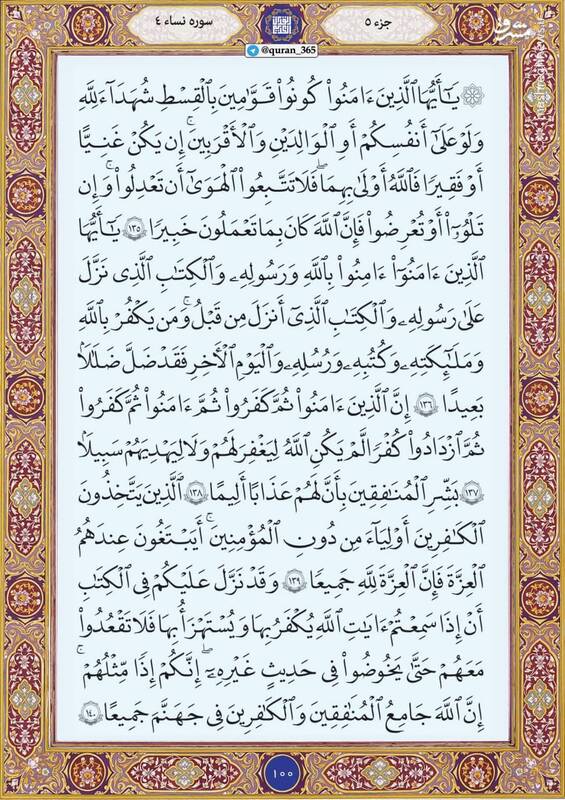 جزء ٥
سوره نساء ٤
@quran_365
يَـٰٓأَيُّهَا ٱلَّذِينَ ءَامَنُوا۟ كُونُوا۟ قَوَّٰمِينَ بِٱلْقِسْطِ شُهَدَآءَ لِلَّهِ
وَلَوْ عَلَىٰٓ أَنفُسِكُمْ أَوِ ٱلْوَٰلِدَيْنِ وَٱلْأَقْرَبِينَ ۚ إِن يَكُنْ غَنِيًّا
أَوْ فَقِيرًا فَٱللَّهُ أَوْلَىٰ بِهِمَا ۖ فَلَا تَتَّبِعُوا۟ ٱلْهَوَىٰٓ أَن تَعْدِلُوا۟ ۚ وَإِن
تَلْوُۥٓا۟ أَوْ تُعْرِضُوا۟ فَإِنَّ ٱللَّهَ كَانَ بِمَا تَعْمَلُونَ خَبِيرًا ١٣٥ يَـٰٓأَيُّهَا
ٱلَّذِينَ ءَامَنُوٓا۟ ءَامِنُوا۟ بِٱللَّهِ وَرَسُولِهِۦ وَٱلْكِتَـٰبِ ٱلَّذِى نَزَّلَ
عَلَىٰ رَسُولِهِۦ وَٱلْكِتَـٰبِ ٱلَّذِىٓ أَنزَلَ مِن قَبْلُ ۚ وَمَن يَكْفُرْ بِٱللَّهِ
وَمَلَـٰٓئِكَتِهِۦ وَكُتُبِهِۦ وَرُسُلِهِۦ وَٱلْيَوْمِ ٱلْـَٔاخِرِ فَقَدْ ضَلَّ ضَلَـٰلًۢا
بَعِيدًا ١٣٦ إِنَّ ٱلَّذِينَ ءَامَنُوا۟ ثُمَّ كَفَرُوا۟ ثُمَّ ءَامَنُوا۟ ثُمَّ كَفَرُوا۟
ثُمَّ ٱزْدَادُوا۟ كُفْرًا لَّمْ يَكُنِ ٱللَّهُ لِيَغْفِرَ لَهُمْ وَلَا لِيَهْدِيَهُمْ سَبِيلًۢا
١٣٧ بَشِّرِ ٱلْمُنَـٰفِقِينَ بِأَنَّ لَهُمْ عَذَابًا أَلِيمًا ١٣٨ ٱلَّذِينَ يَتَّخِذُونَ
ٱلْكَـٰفِرِينَ أَوْلِيَآءَ مِن دُونِ ٱلْمُؤْمِنِينَ ۚ أَيَبْتَغُونَ عِندَهُمُ
ٱلْعِزَّةَ فَإِنَّ ٱلْعِزَّةَ لِلَّهِ جَمِيعًا ١٣٩ وَقَدْ نَزَّلَ عَلَيْكُمْ فِى ٱلْكِتَـٰبِ
أَنْ إِذَا سَمِعْتُمْ ءَايَـٰتِ ٱللَّهِ يُكْفَرُ بِهَا وَيُسْتَهْزَأُ بِهَا فَلَا تَقْعُدُوا۟
مَعَهُمْ حَتَّىٰ يَخُوضُوا۟ فِى حَدِيثٍ غَيْرِهِۦٓ ۚ إِنَّكُمْ إِذًا مِّثْلُهُمْ ۗ
إِنَّ ٱللَّهَ جَامِعُ ٱلْمُنَـٰفِقِينَ وَٱلْكَـٰفِرِينَ فِى جَهَنَّمَ جَمِيعًا ١٤٠
١٠٠